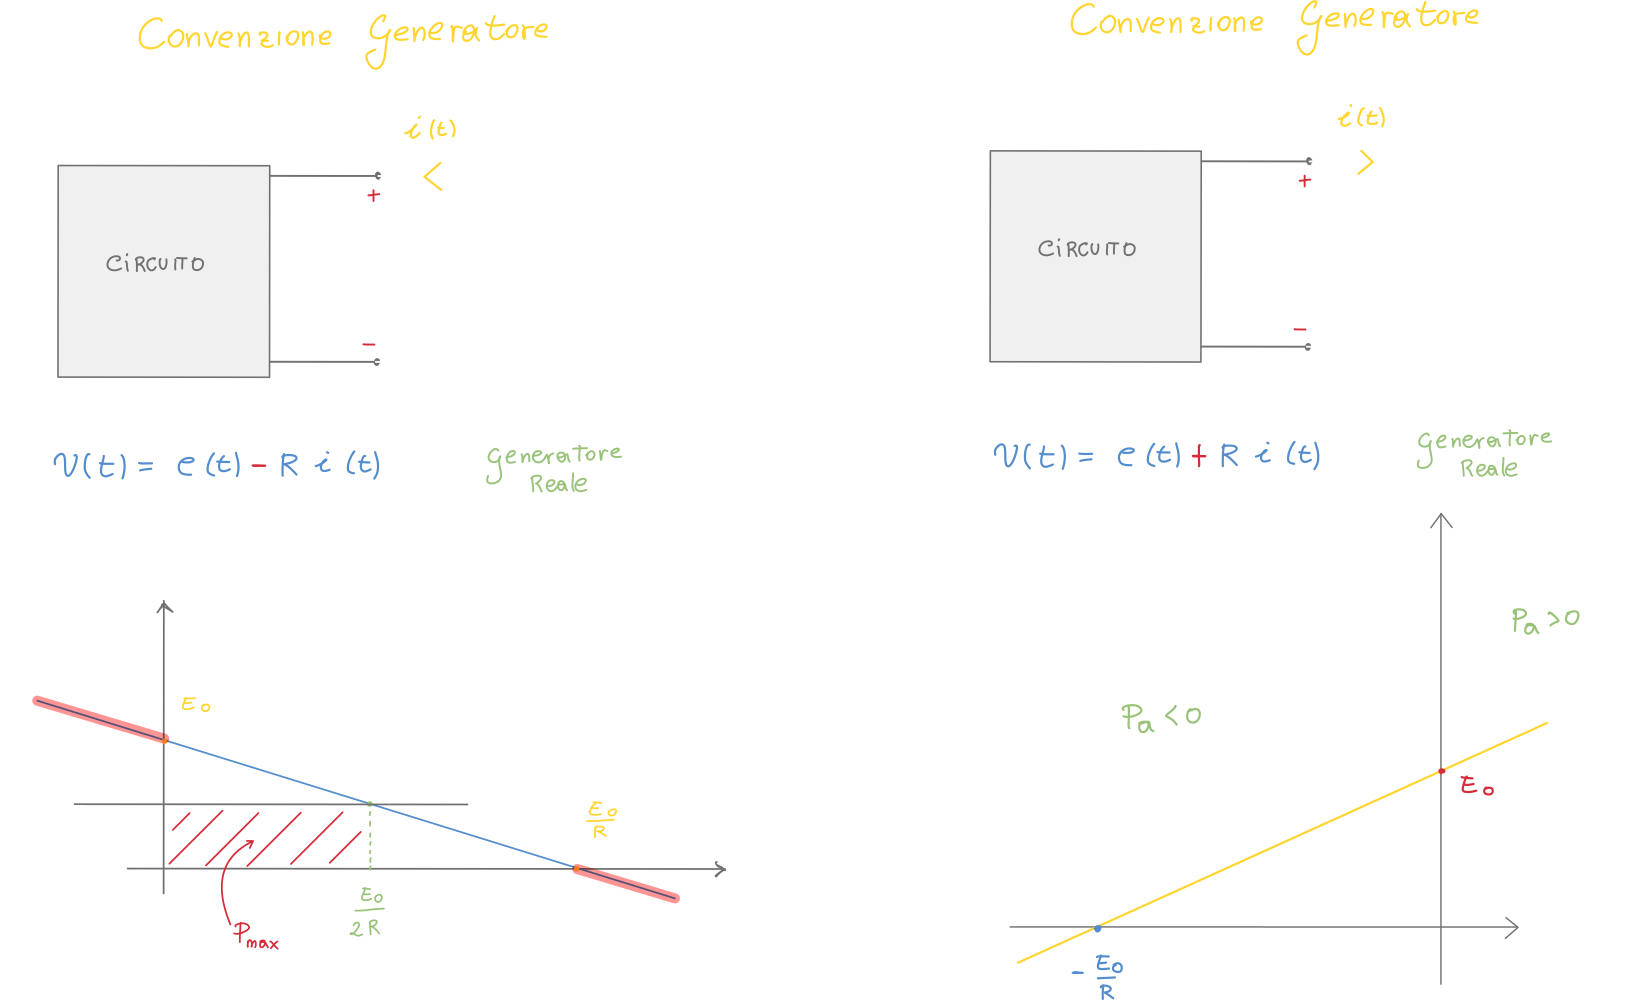 Convenzione Generatore
i(t)
<
+
CIRCUITO
-
v(t) = e(t) - R i(t)
Generatore
Reale
E₀
E₀
R
E₀
2R
Pmax
Convenzione Generatore
i(t)
>
+
CIRCUITO
-
v(t) = e(t) + R i(t)
Generatore
Reale
Pa > 0
Pa < 0
E₀
- E₀
R